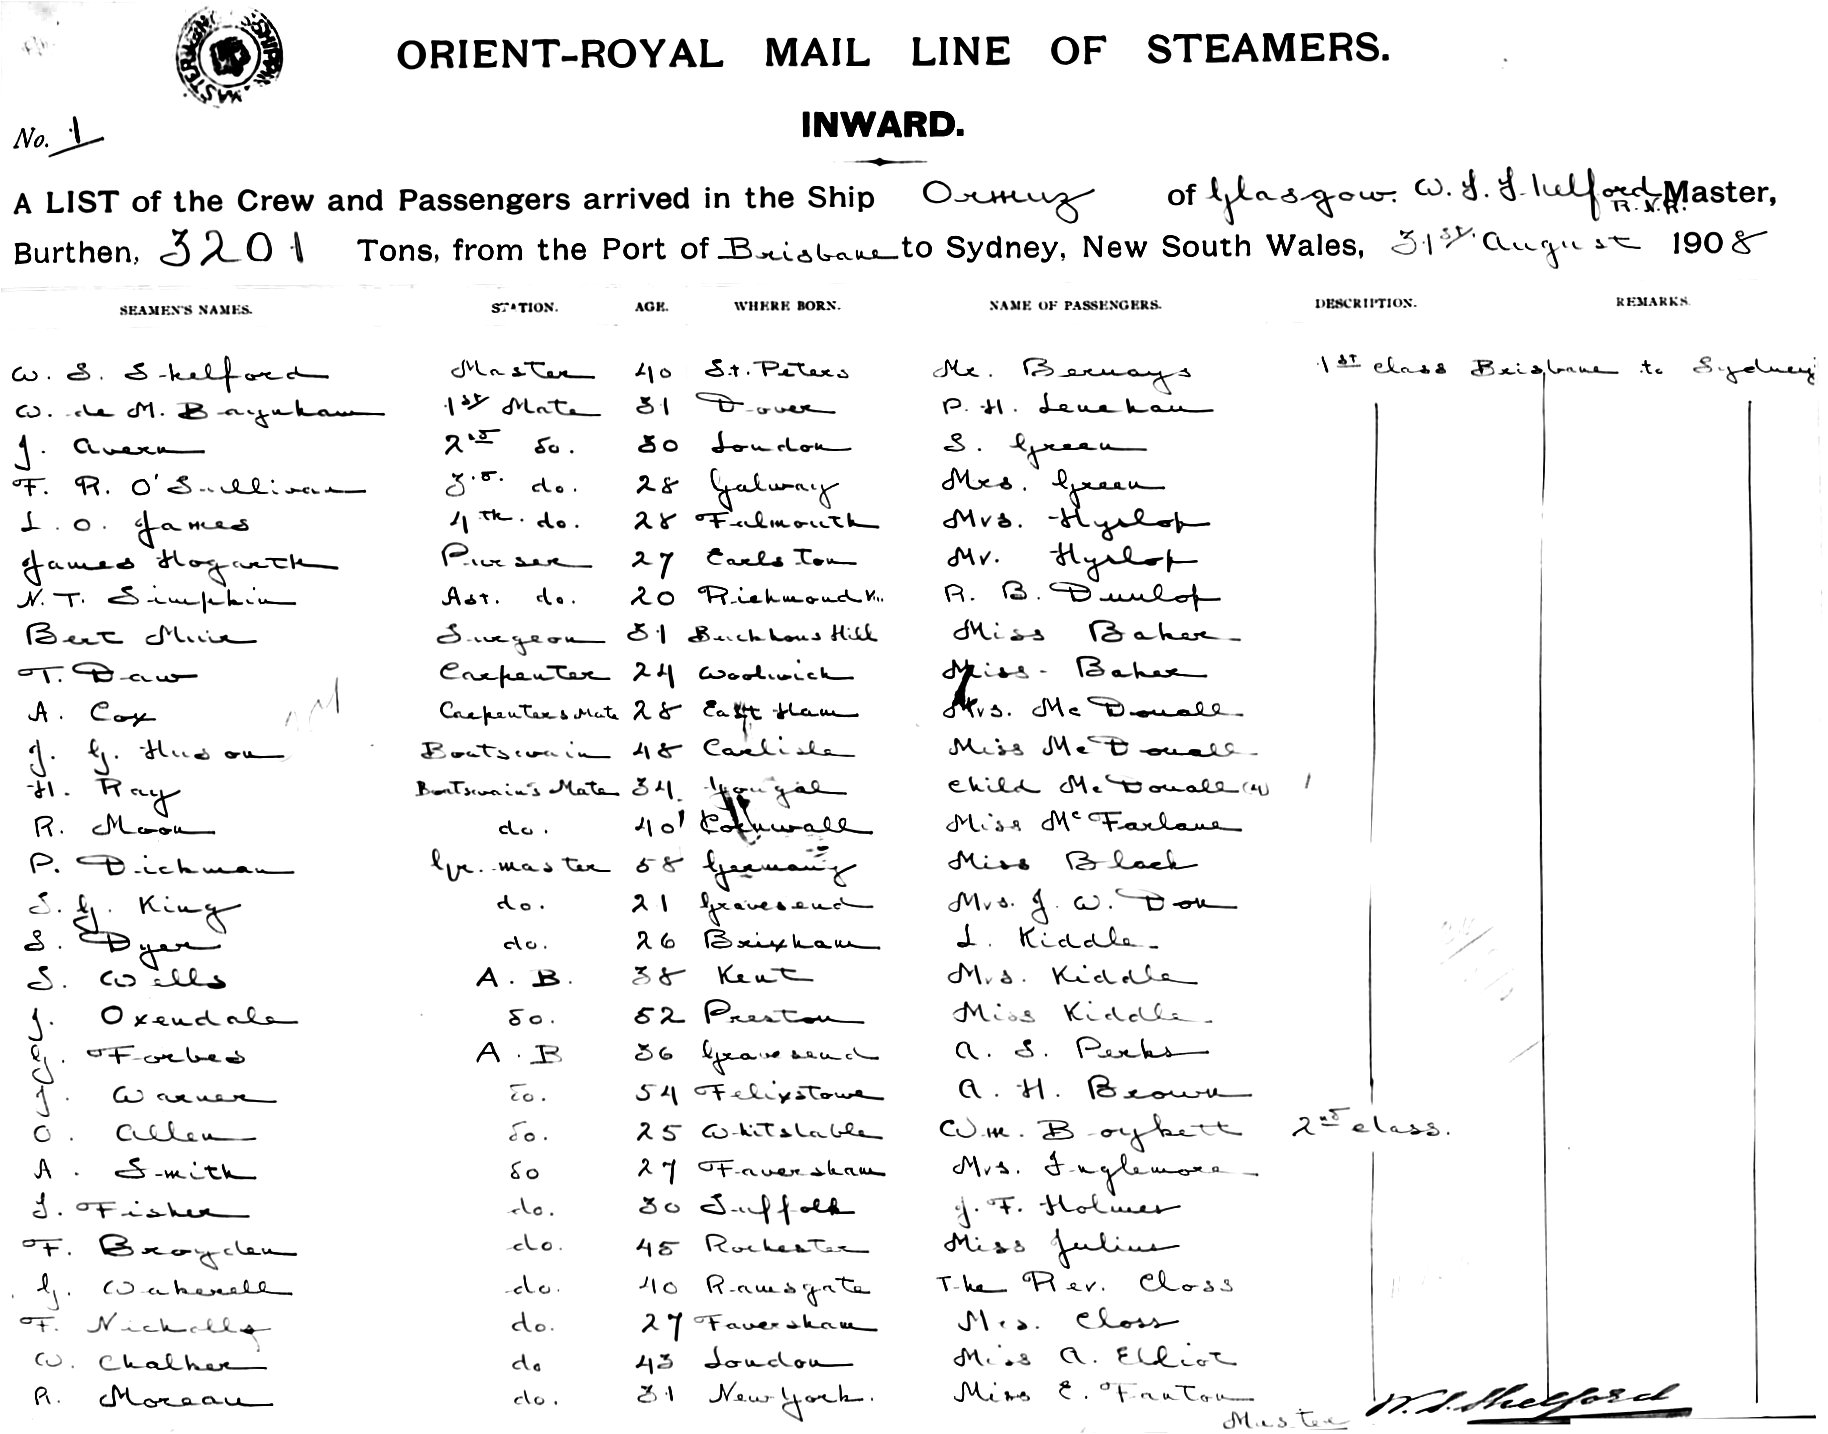 ORIENT-ROYAL MAIL LINE OF STEAMERS.
INWARD.
No. 1
A LIST of the Crew and Passengers arrived in the Ship Ormuz of Glasgow. W. S. Shelford R.N.R. Master,
Burthen, 3201 Tons, from the Port of Brisbane to Sydney, New South Wales, 31st August 1908
SEAMEN'S NAMES. STATION. AGE. WHERE BORN. NAME OF PASSENGERS. DESCRIPTION. REMARKS.
W. S. Shelford Master 40 St. Peters Mr. Bernays 1st class Brisbane to Sydney
W. de M. Baynham 1st Mate 31 Dover P. H. Lenehan
J. Avern 2nd do. 30 London S. Green
F. R. O'Sullivan 3rd. do. 28 Galway Mrs. Green
L. O. James 4th. do. 28 Falmouth Mrs. Hyslop
James Hogarth Purser 27 Earlston Mr. Hyslop
N. T. Simpkin Ast. do. 20 Richmond R. B. Dunlop
Bert Muir Surgeon 31 Hill Miss Baker
T. Daw Carpenter 24 Woolwich Miss Baker
A. Cox Carpenters Mate 28 East Ham Mrs. McDouall
J. G. Huson Boatswain 48 Carlisle Miss McDouall
H. Ray Boatswain's Mate 34 Yougal Child McDouall
R. Moon do. 40 Cornwall Miss McFarlane
P. Dickman Qr. master 58 Germany Miss Black
S. G. King do. 21 Gravesend Mrs. J. W. Don
S. Dyer do. 26 Brixham L. Kiddle
S. Wells A. B. 38 Kent Mrs. Kiddle
J. Oxendale do. 52 Preston Miss Kiddle
G. Forbes A. B 36 Gravesend A. S. Perks
J. Warner do. 54 Felixstowe A. H. Brown
O. Allen do. 25 Whitstable Wm. Boykett 2nd class.
A. Smith do 27 Faversham Mrs. Inglemore
S. Fisher do. 30 Suffolk J. F. Holmes
F. Broyden do. 45 Rochester Miss Julius
G. Wakerell do. 40 Ramsgate The Rev. Closs
F. Nicholls do. 27 Faversham Mrs. Closs
W. Chalker do 43 London Miss A. Elliot
R. Moreau do. 31 New York. Miss E. Fanton
Master W. S. Shelford